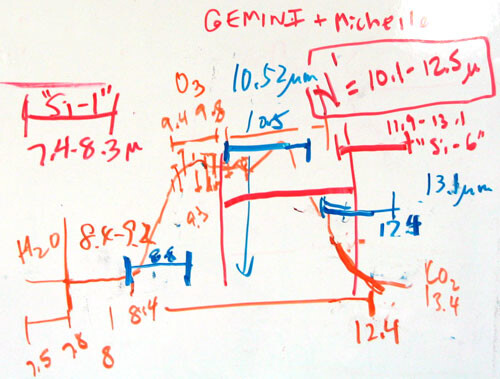 GEMINI + Michelle
O3
10.52μm
N' = 10.1-12.5μ
9.4 9.8
10.5
"Si-1"
11.9-13.1
"Si-6"
7.4-8.3μ
9.3
13.1μm
H2O
8.4-9.2
8.8
12.5
CO2
13.4
8.4
12.4
7.5 7.8 8